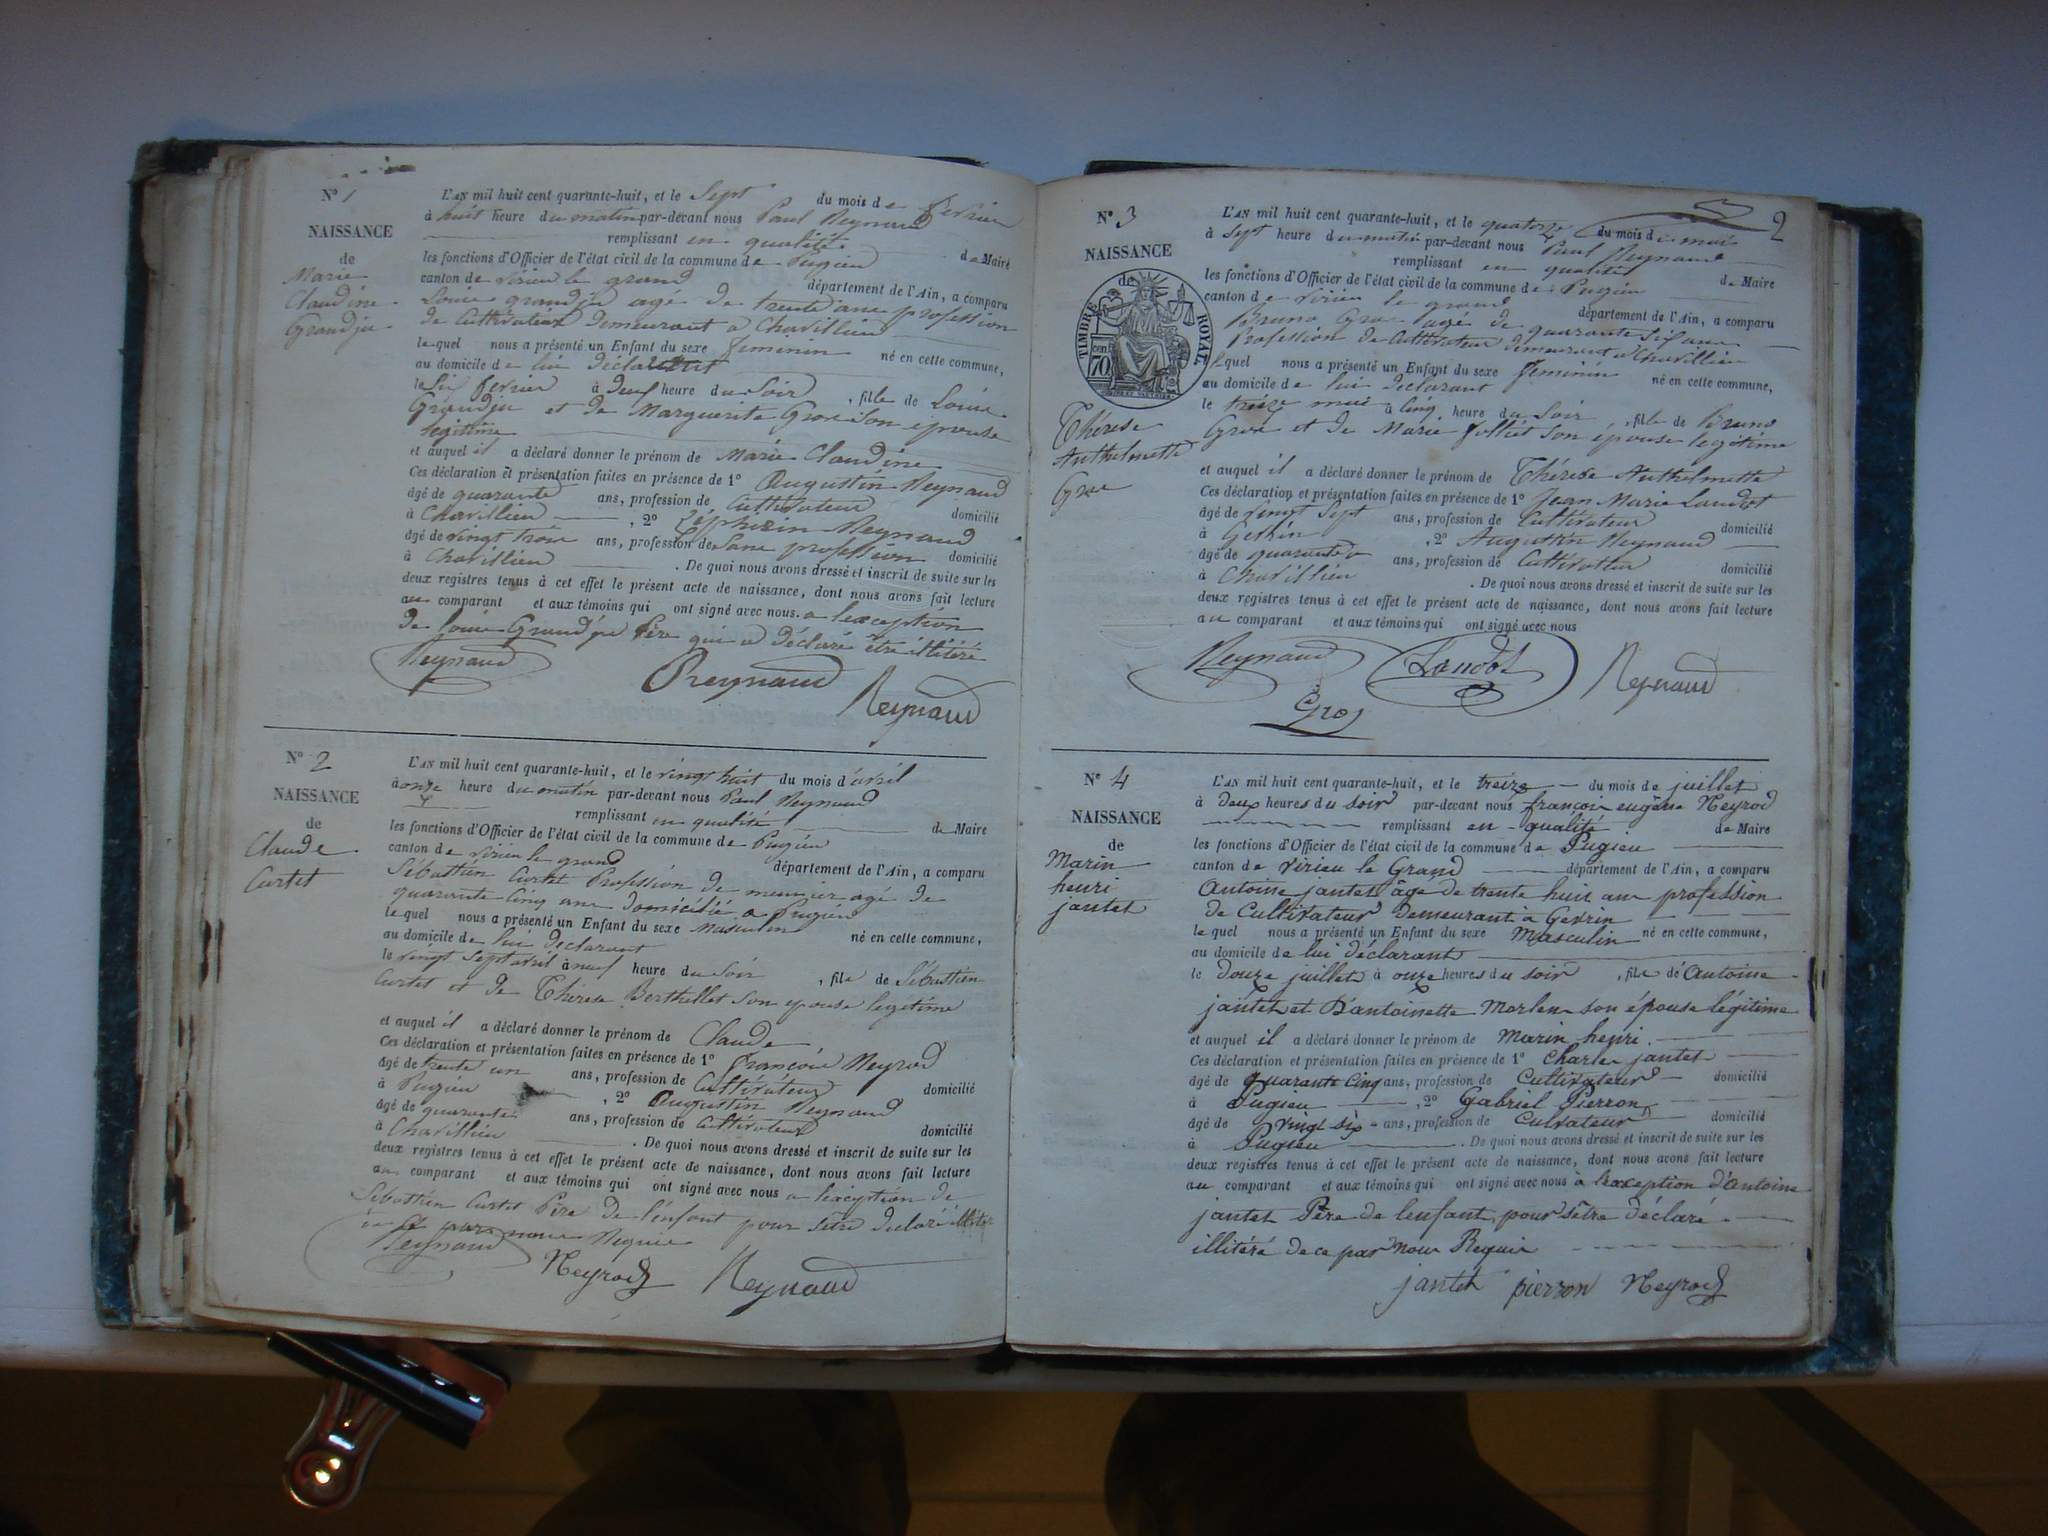 N° 1
NAISSANCE
de
Marie
Claudine
Grandju
L'AN mil huit cent quarante-huit, et le Sept du mois de fevrier
à huit heure du matin par-devant nous Paul Reynaud
remplissant en qualité de Maire
les fonctions d'Officier de l'état civil de la commune de Pugieu
canton de virieu le grand département de l'Ain, a comparu
Louis grandju agé de trente ans profession
de Cultivateur demeurant a Chavillieu
le quel nous a présenté un Enfant du sexe feminin né en cette commune,
au domicile de lui déclarant
le Six fevrier à heure du Soir, fille de Louis
Grandju et de Marguerite Gros son epouse
legitime
et auquel il a déclaré donner le prénom de Marie Claudine
Ces déclaration et présentation faites en présence de 1° Augustin Reynaud
âgé de quarante ans, profession de Cultivateur domicilié
à Chavillieu, 2° Zéphirin Reynaud
âgé de vingt trois ans, profession de Sans profession domicilié
à Chavillieu. De quoi nous avons dressé et inscrit de suite sur les
deux registres tenus à cet effet le présent acte de naissance, dont nous avons fait lecture
au comparant et aux témoins qui ont signé avec nous. a lexception
de Louis Grandju Père qui a déclaré être illitéré
Reynaud Reynaud Reynaud
N° 2
NAISSANCE
de
Claude
Curtet
L'AN mil huit cent quarante-huit, et le vingt huit du mois d'avril
à onze heure du matin par-devant nous Paul Reynaud
remplissant en qualité de Maire
les fonctions d'Officier de l'état civil de la commune de Pugieu
canton de virieu le grand département de l'Ain, a comparu
Sébastien Curtet Profession de meunier agé de
quarante Cinq ans domicilié a Pugieu
le quel nous a présenté un Enfant du sexe Masculin né en cette commune,
au domicile de lui declarant
le vingt Sept avril à neuf heure du Soir, fils de Sébastien
Curtet et de Thérese Berthellet Son epouse legitime
et auquel il a déclaré donner le prénom de Claude
Ces déclaration et présentation faites en présence de 1° François Neyrod
âgé de trente un ans, profession de Cultivateur domicilié
à Pugieu, 2° Augustin Reynaud
âgé de quarante ans, profession de Cultivateur domicilié
à Chavillieu. De quoi nous avons dressé et inscrit de suite sur les
deux registres tenus à cet effet le présent acte de naissance, dont nous avons fait lecture
au comparant et aux témoins qui ont signé avec nous a lexception de
Sébastien Curtet Père de l'enfant pour Sétre declaré
de ce par nous Requis
Reynaud Neyrod Reynaud
2
N° 3
NAISSANCE
de
TIMBRE ROYAL
70 cent
Thérese
Anthelmette
Gros
L'AN mil huit cent quarante-huit, et le quatorze du mois de mai
à sept heure du matin par-devant nous Paul Reynaud
remplissant en qualité de Maire
les fonctions d'Officier de l'état civil de la commune de Pugieu
canton de virieu le grand département de l'Ain, a comparu
Bruno Gros agé de quarante Six ans
Profession de Cultivateur demeurant a Chavillieu
lequel nous a présenté un Enfant du sexe feminin né en cette commune,
au domicile de lui declarant
le treize mai à Cinq heure du Soir, fille de Bruno
Gros et de Marie Son épouse legitime
et auquel il a déclaré donner le prénom de Thérese Anthelmette
Ces déclaration et présentation faites en présence de 1° Jean Marie Landot
âgé de vingt Sept ans, profession de Cultivateur domicilié
à, 2° Augustin Reynaud
âgé de quarante ans, profession de Cultivateur domicilié
à Chavillieu. De quoi nous avons dressé et inscrit de suite sur les
deux registres tenus à cet effet le présent acte de naissance, dont nous avons fait lecture
au comparant et aux témoins qui ont signé avec nous
Reynaud Landot Reynaud
Gros
N° 4
NAISSANCE
de
Marin
henri
jantet
L'AN mil huit cent quarante-huit, et le treize du mois de juillet
à deux heures du soir par-devant nous françois eugène Neyrod
remplissant en qualité de Maire
les fonctions d'Officier de l'état civil de la commune de Pugieu
canton de virieu le Grand département de l'Ain, a comparu
Antoine jantet âgé de trente huit ans profession
de Cultivateur demeurant à Gevrin
le quel nous a présenté un Enfant du sexe Masculin né en cette commune,
au domicile de lui déclarant
le douze juillet à onze heures du soir, fils d'Antoine
jantet et D'antoinette Morlen son épouse légitime
et auquel il a déclaré donner le prénom de Marin henri.
Ces déclaration et présentation faites en présence de 1° Charles jantet
âgé de quarante cinq ans, profession de Cultivateur domicilié
à Pugieu, 2° Gabriel Pierron
âgé de vingt six ans, profession de Cultivateur domicilié
à Pugieu. De quoi nous avons dressé et inscrit de suite sur les
deux registres tenus à cet effet le présent acte de naissance, dont nous avons fait lecture
au comparant et aux témoins qui ont signé avec nous à l'exception d'Antoine
jantet Père de lenfant, pour sêtre déclaré
illitéré de ce par nous Requis
jantet pierron Neyrod